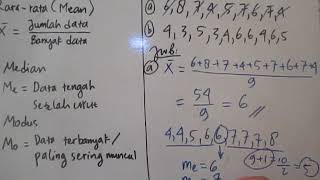 Rata-rata (Mean)
X̄ = Jumlah data / Banyak data
Median
Me = Data tengah
Setelah urut
Modus
Mo = Data terbanyak/
paling sering muncul
b) 4, 3, 5, 3, 4, 6, 6, 4, 6, 5
Jwb:
a) X̄ = 6+8+7+4+5+7+6+7+4 / 9
= 54 / 9 = 6
4, 4, 5, 6, 6, 7, 7, 7, 8
Me = 6
9+1 10 / 2 = 5